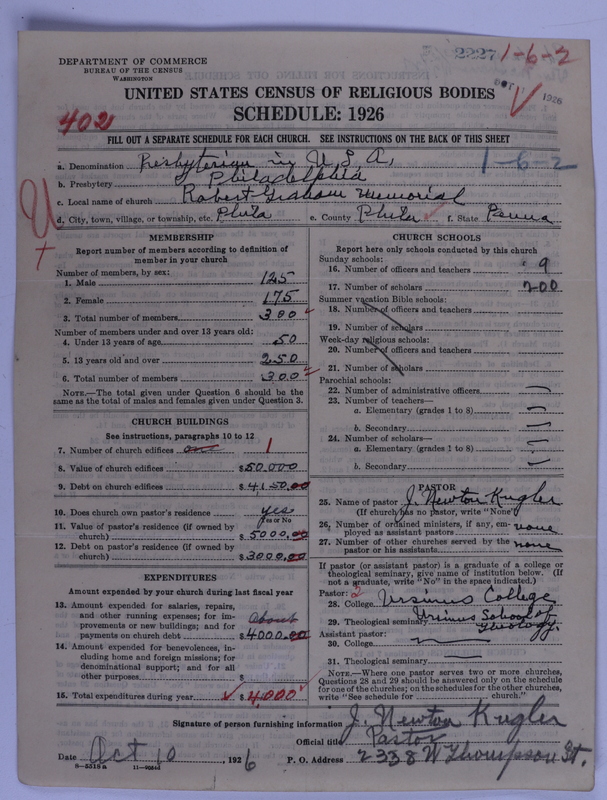 2227 1-6-2
DEPARTMENT OF COMMERCE
BUREAU OF THE CENSUS
WASHINGTON
UNITED STATES CENSUS OF RELIGIOUS BODIES
OCT 1926
SCHEDULE: 1926
402
FILL OUT A SEPARATE SCHEDULE FOR EACH CHURCH. SEE INSTRUCTIONS ON THE BACK OF THIS SHEET
a. Denomination Presbyterian in U.S.A. 1-6-2
b. Presbytery Philadelphia
c. Local name of church Robert Graham Memorial
d. City, town, village, or township, etc. Phila e. County Phila f. State Penna
U
MEMBERSHIP
Report number of members according to definition of
member in your church
Number of members, by sex:
1. Male 125
2. Female 175
3. Total number of members 300
Number of members under and over 13 years old:
4. Under 13 years of age 50
5. 13 years old and over 250
6. Total number of members 300
NOTE.—The total given under Question 6 should be the
same as the total of males and females given under Question 3.
CHURCH BUILDINGS
See instructions, paragraphs 10 to 12
7. Number of church edifices one 1
8. Value of church edifices $50.000
9. Debt on church edifices $4150.00
10. Does church own pastor's residence yes
Yes or No
11. Value of pastor's residence (if owned by
church) $5000.00
12. Debt on pastor's residence (if owned by
church) $3000.00
EXPENDITURES
Amount expended by your church during last fiscal year
13. Amount expended for salaries, repairs,
and other running expenses; for im-
provements or new buildings; and for
payments on church debt About $4000.00
14. Amount expended for benevolences, in-
cluding home and foreign missions; for
denominational support; and for all
other purposes $
15. Total expenditures during year $4,000
CHURCH SCHOOLS
Report here only schools conducted by this church
Sunday schools:
16. Number of officers and teachers 9
17. Number of scholars 200
Summer vacation Bible schools:
18. Number of officers and teachers
19. Number of scholars
Week-day religious schools:
20. Number of officers and teachers
21. Number of scholars
Parochial schools:
22. Number of administrative officers
23. Number of teachers—
a. Elementary (grades 1 to 8)
b. Secondary
24. Number of scholars—
a. Elementary (grades 1 to 8)
b. Secondary
PASTOR
25. Name of pastor J. Newton Kugler
(If church has no pastor, write "None")
26. Number of ordained ministers, if any, em-
ployed as assistant pastors none
27. Number of other churches served by the
pastor or his assistants none
If pastor (or assistant pastor) is a graduate of a college or
theological seminary, give name of institution below. (If
not a graduate, write "No" in the space indicated.)
Pastor: 2
28. College Ursinus College
29. Theological seminary Ursinus School of Theology.
Assistant pastor:
30. College
31. Theological seminary
NOTE.—Where one pastor serves two or more churches,
Questions 28 and 29 should be answered only on the schedule
for one of the churches; on the schedules for the other churches,
write "See schedule for church."
Signature of person furnishing information J. Newton Kugler
Official title Pastor
Date Oct 10, 1926 P. O. Address 2338 W Thompson St.
8-5318a